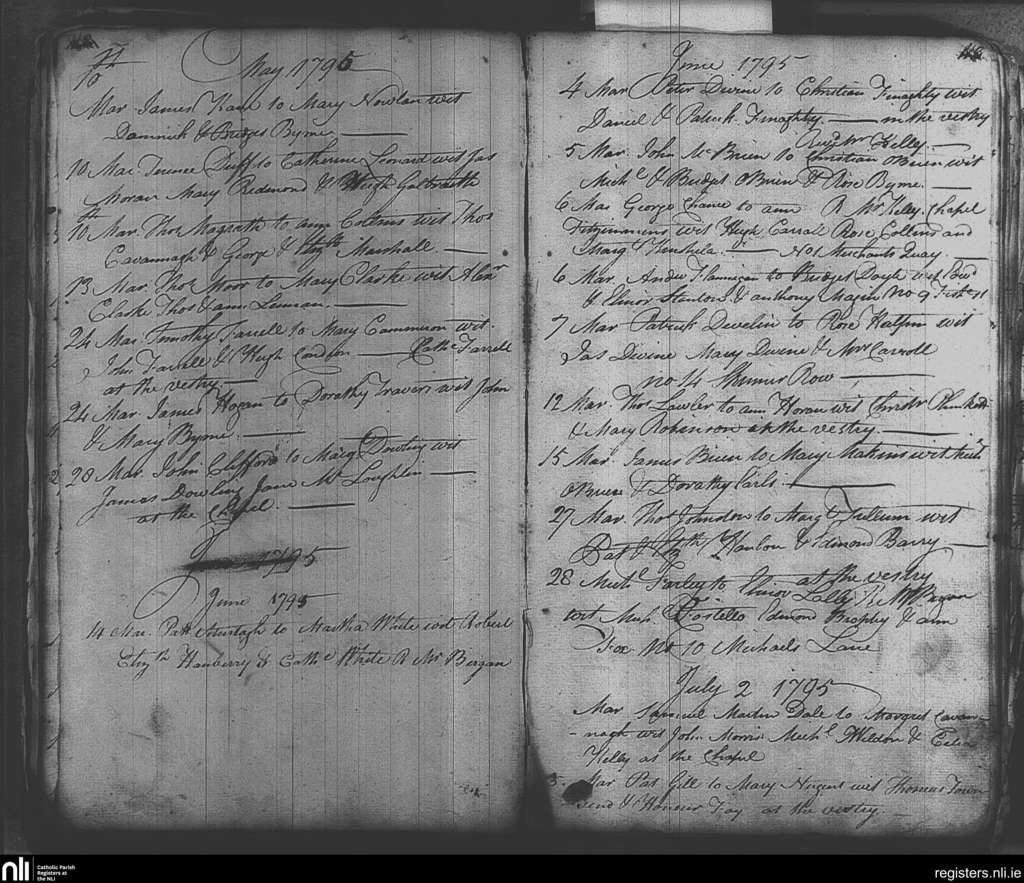 May 1795
10
Mar James Kane to Mary Nowlan wit
Daminick & Bridget Byrne
10 Mar Terence Duff to Catherine Leonard wit Jas
Moran Mary Redmond & Hugh Galbraith
10 Mar. Thos Magrath to ann wit Thos
Cavannagh & George & Marshall.
13 Mar Thos Moor to Mary Clarke wit Alexr
Clarke Thos & ann
24 Mar. Timothy Farrell to Mary Cammeron wit.
John Farrell & Hugh Condron Cathe Farrell
at the vestry
24 Mar James Hogan to Dorathy Travers wit John
& Mary Byrne.
28 Mar. John Clifford to Mary Dowling wit
James Dowling Jane Mc Loughlin
at the Chapel.
1795
June 1795
14 Mar. Patt Murtagh to Martha White wit Robert
Elizth Hanberry & Cathe White R Mr Bergan
June 1795
4 Mar Peter Divine to Christian Finaghty wit
Daniel & Patrick Finaghty. in the vestry
Revd Mr Kelly.
5 Mar. John McBrien to Christian OBrien wit
Michl & Bridget OBrien & Rose Byrne.
6 Mar George Chance to ann R Mr Kelly. Chapel
Fitzimmons wit Hugh Carrall Rose Collins and
Margt No 1 Merchants Quay.
6 Mar. Andw Flannigan to Bridget Doyle wit Edwd
& Elinor Stanton & anthony Magin No 9 Fishr st
7 Mar Patrick Develin to Rose Halfpin wit
Jas Divine Mary Divine & Mrs Carroll
no 14 Skinner Row
12 Mar. Thos Lawler to ann Horan wit Christr Plunkett
& Mary Robinson at the vestry.
15 Mar. James Brien to Mary Makins wit
OBrien & Dorathy Carls.
27 Mar. Thos Johnston to Margt wit
Pat & Elizth Hanlon & Edmond Barry
28 Michl Farley to Elinor Lally at the vestry
R Mr Bergan
wit Michl Costello Edmond Brophy & ann
Fox No 10 Michaels Lane
July 2 1795
Mar Samuel Martin Dale to Margret Cavan
-nagh wit John Morris Michl Weldon & Celia
Kelly at the Chapel
5 Mar Pat Gill to Mary Nugent wit Thomas Town
send & Honour Fay at the vestry.
nli
Catholic Parish
Registers at
the NLI
registers.nli.ie